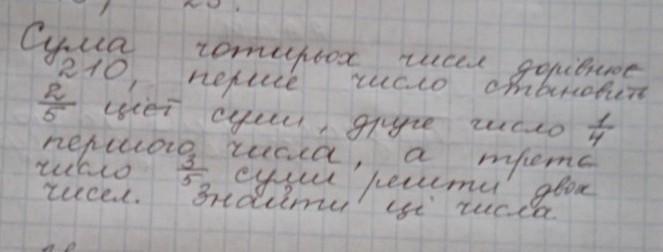 Сума чотирьох чисел дорівнює
210, перше число становить
2/5 цієї суми, друге число 1/4
першого числа, а третє
число 3/5 суми решти двох
чисел. Знайти ці числа.